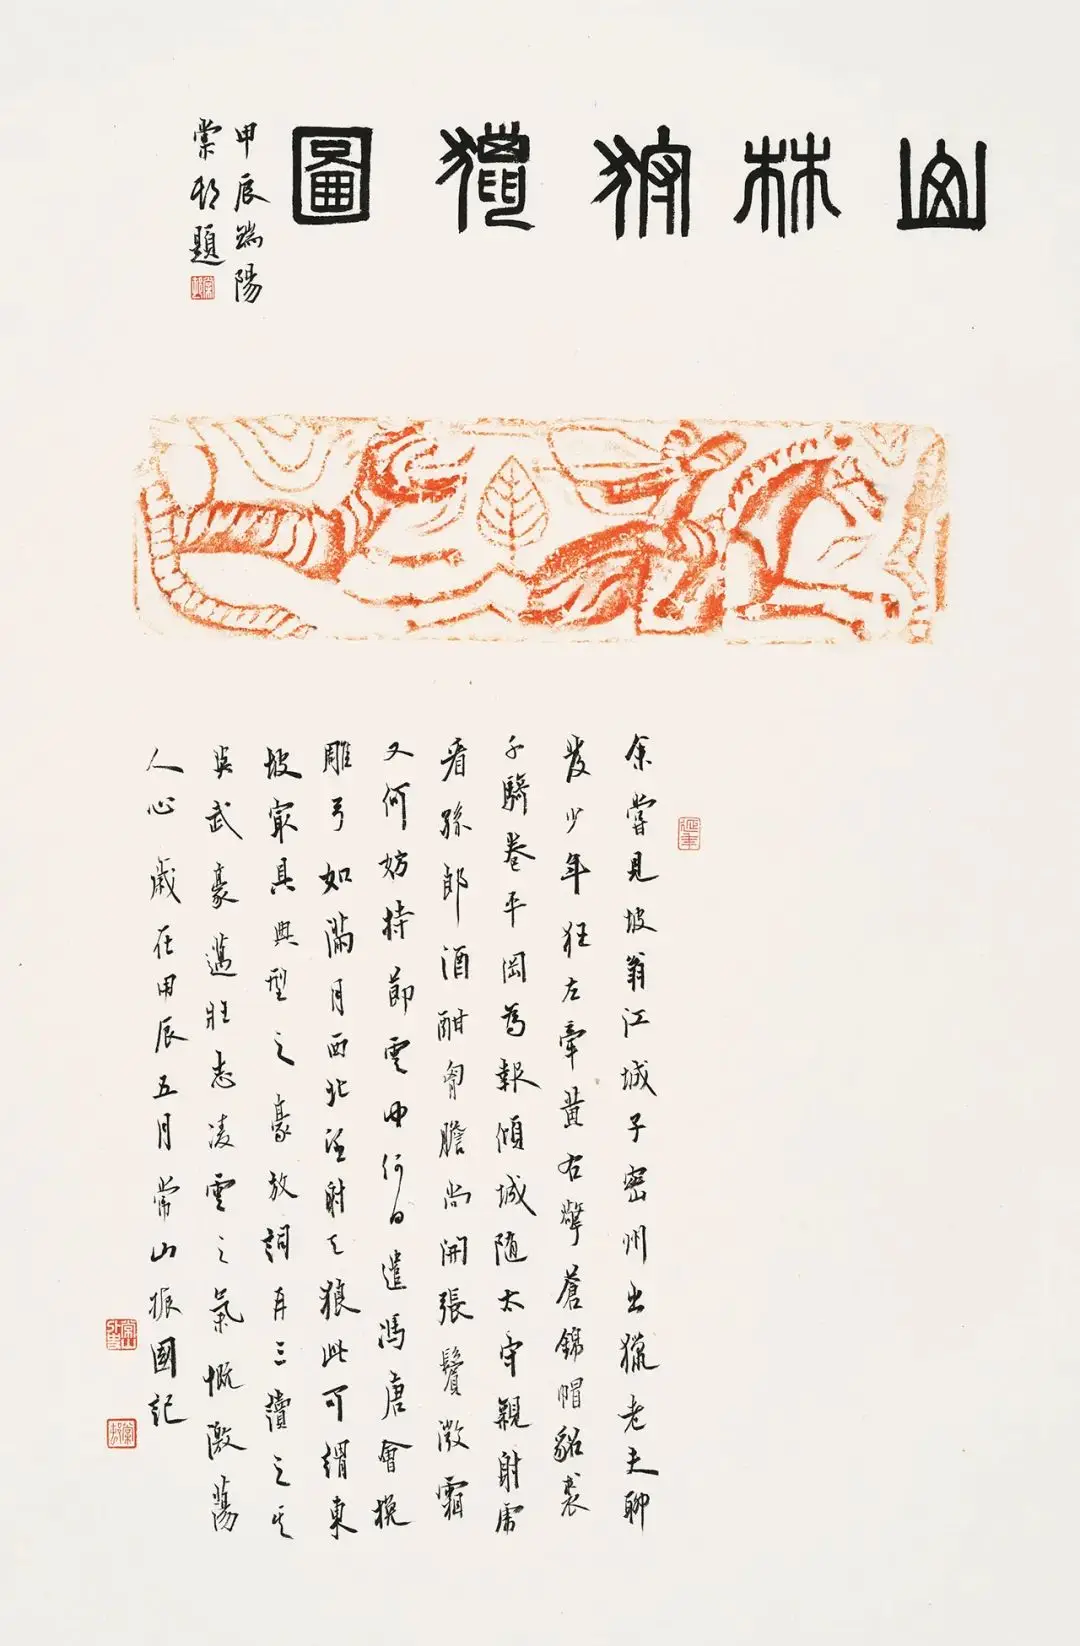 山林狩獵圖
甲辰端陽
棠邨題
余嘗見坡翁江城子密州出獵老夫聊
發少年狂左牽黃右擎蒼錦帽貂裘
千騎卷平岡為報傾城隨太守親射虎
看孫郎酒酣胸膽尚開張鬢微霜
又何妨持節雲中何日遣馮唐會挽
雕弓如滿月西北望射天狼此可謂東
坡最具典型之豪放詞再三讀之其
英武豪邁壯志凌雲之氣慨激蕩
人心 歲在甲辰五月常山振國記